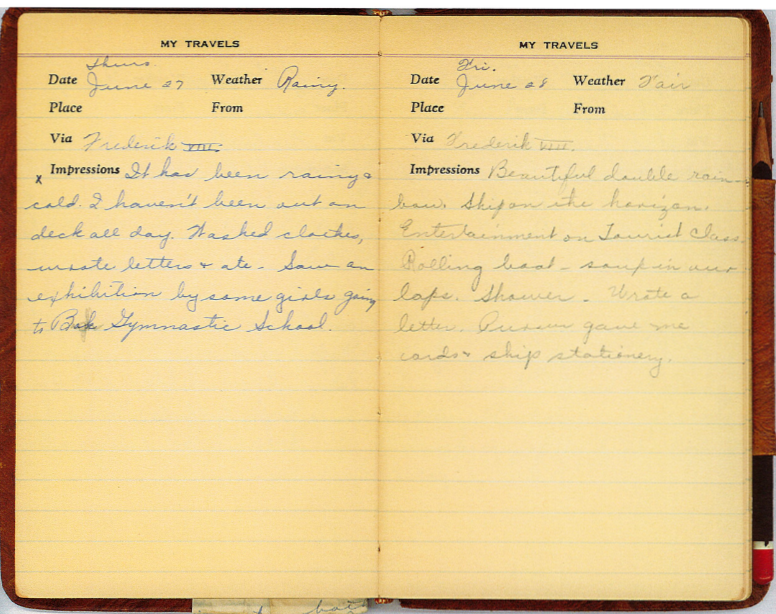 MY TRAVELS
Thurs.
Date June 27 Weather Rainy.
Place From
Via Frederik VIII.
x Impressions It has been rainy &
cold. I haven't been out on
deck all day. Washed clothes,
wrote letters & ate. Saw an
exhibition by some girls going
to Gymnastic School.
MY TRAVELS
Fri.
Date June 28 Weather Fair
Place From
Via Frederik VIII.
Impressions Beautiful double rain-
bow. Ship on the horizon.
Entertainment on Tourist Class.
Rolling boat - soup in our
laps. Shower. Wrote a
letter. Purser gave me
cards & ship stationery.